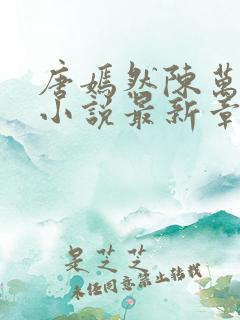 唐嫣然陳萬
小說最新章
是芝芝
未经同意禁止转载